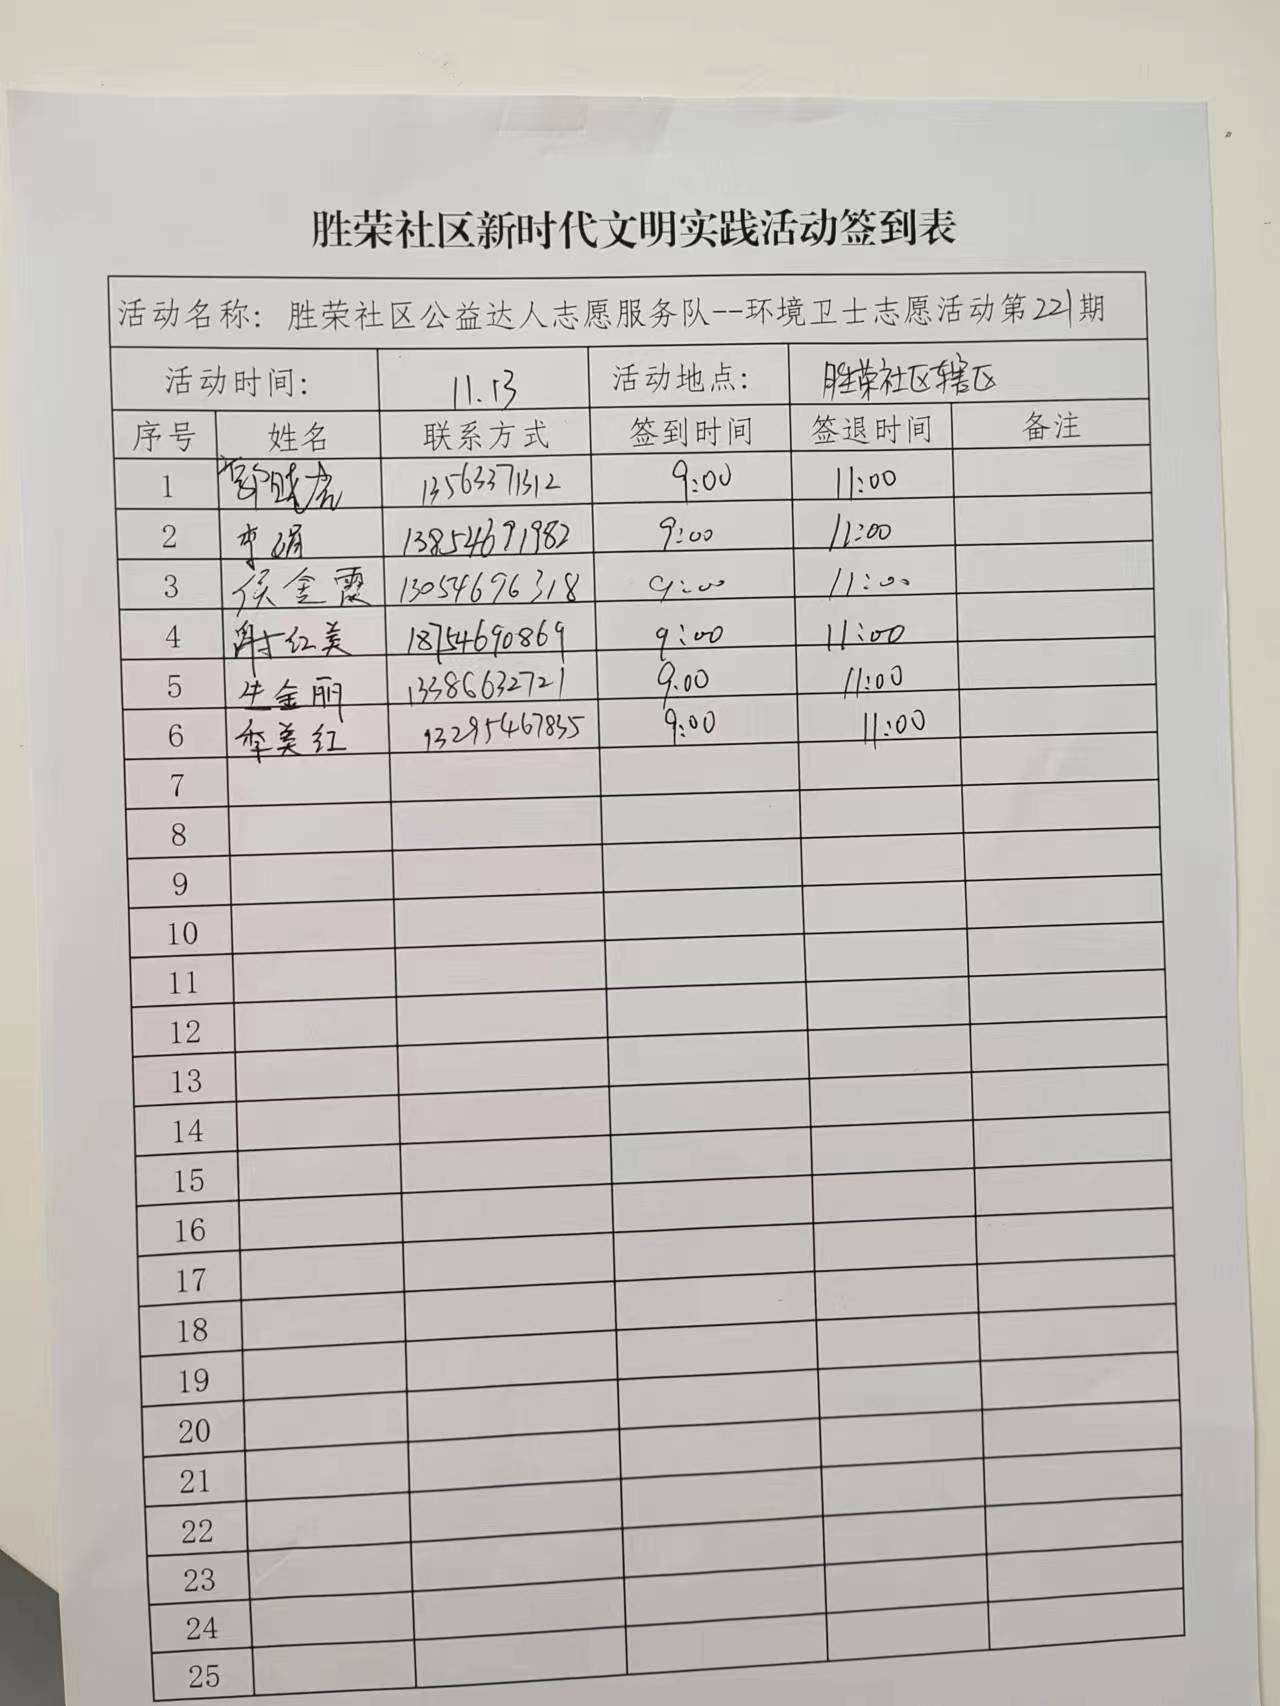 胜荣社区新时代文明实践活动签到表
活动名称：胜荣社区公益达人志愿服务队--环境卫士志愿活动第221期
活动时间： 11.13 活动地点： 胜荣社区辖区
序号 姓名 联系方式 签到时间 签退时间 备注
1 13563371312 9:00 11:00
2 李娟 13854691982 9:00 11:00
3 侯金霞 13054696318 9:00 11:00
4 谢红美 18754690869 9:00 11:00
5 牛金丽 13386632721 9:00 11:00
6 季美红 13295467835 9:00 11:00
7
8
9
10
11
12
13
14
15
16
17
18
19
20
21
22
23
24
25